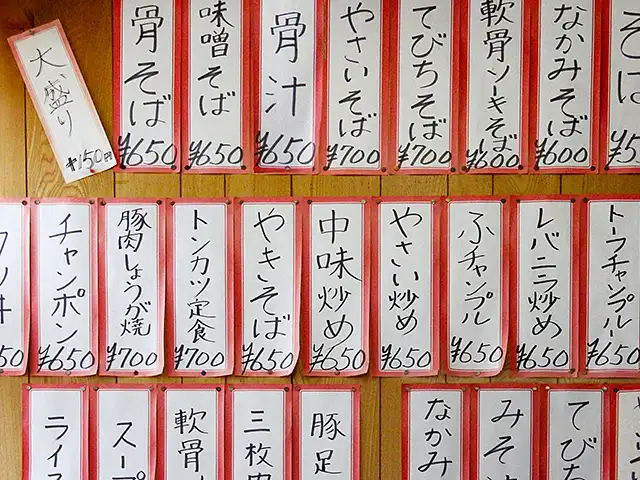 そば
¥5
なかみそば
¥600
軟骨ソーキそば
¥600
てびちそば
¥700
やさいそば
¥700
骨汁
¥650
味噌そば
¥650
骨そば
¥650
大盛り
¥150円
トーフチャンプルー
¥650
レバニラ炒め
¥650
ふチャンプル
¥650
やさい炒め
¥650
中味炒め
¥650
やきそば
¥650
トンカツ定食
¥700
豚肉しょうが焼
¥700
チャンポン
¥650
50
てび
みそ
なかみ
豚足
三枚
軟骨
スー
ライ